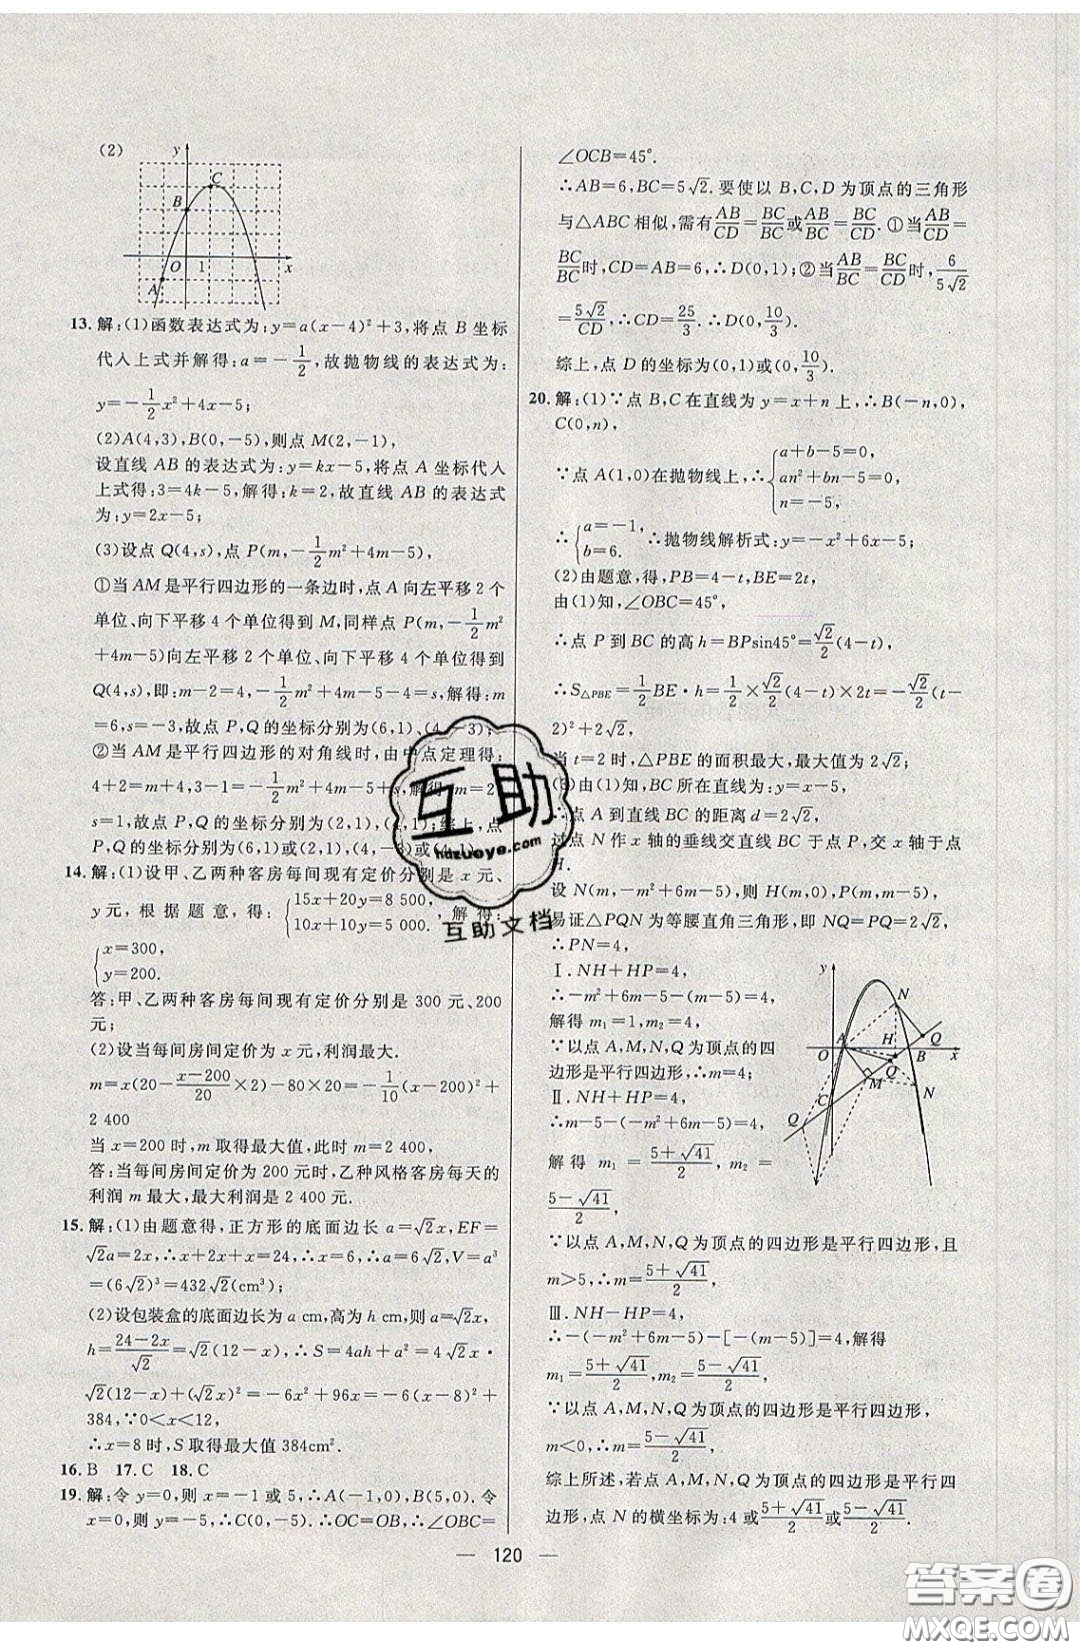 (2)
y
C
B
O 1 x
A
13. 解:(1)函数表达式为:y=a(x-4)²+3,将点 B 坐标
代入上式并解得:a=-1/2,故抛物线的表达式为:
y=-1/2x²+4x-5;
(2)A(4,3),B(0,-5),则点 M(2,-1),
设直线 AB 的表达式为:y=kx-5,将点 A 坐标代入
上式得:3=4k-5,解得:k=2,故直线 AB 的表达式
为:y=2x-5;
(3)设点 Q(4,s),点 P(m,-1/2m²+4m-5),
①当 AM 是平行四边形的一条边时,点 A 向左平移 2 个
单位、向下平移 4 个单位得到 M,同样点 P(m,-1/2m²
+4m-5)向左平移 2 个单位、向下平移 4 个单位得到
Q(4,s),即:m-2=4,-1/2m²+4m-5-4=s,解得:m
=6,s=-3,故点 P,Q 的坐标分别为(6,1),(4,-3);
②当 AM 是平行四边形的对角线时,由中点定理得:
4+2=m+4,3-1=-1/2m²+4m-5+s,解得:m=2,
s=1,故点 P,Q 的坐标分别为(2,1),(4,1);综上,点
P,Q 的坐标分别为(6,1)或(2,1),(4,-3)或(4,1).
14. 解:(1)设甲、乙两种客房每间现有定价分别是 x 元、
y 元,根据题意,得:{15x+20y=8 500, 10x+10y=5 000. 解得:
{x=300, y=200.
答:甲、乙两种客房每间现有定价分别是 300 元、200
元;
(2)设当每间房间定价为 x 元,利润最大.
m=x(20-(x-200)/20×2)-80×20=-1/10(x-200)²+
2 400
当 x=200 时,m 取得最大值,此时 m=2 400,
答:当每间房间定价为 200 元时,乙种风格客房每天的
利润 m 最大,最大利润是 2 400 元.
15. 解:(1)由题意得,正方形的底面边长 a=√2x,EF=
√2a=2x,∴x+2x+x=24,∴x=6,∴a=6√2,V=a³
=(6√2)³=432√2(cm³);
(2)设包装盒的底面边长为 a cm,高为 h cm,则 a=√2x,
h=(24-2x)/√2=√2(12-x),∴S=4ah+a²=4√2x·
√2(12-x)+(√2x)²=-6x²+96x=-6(x-8)²+
384,∵0<x<12,
∴x=8 时,S 取得最大值 384cm².
16. B 17. C 18. C
19. 解:令 y=0,则 x=-1 或 5,∴A(-1,0),B(5,0).令
x=0,则 y=-5,∴C(0,-5).∴OC=OB,∴∠OBC=
∠OCB=45°.
∴AB=6,BC=5√2.要使以 B,C,D 为顶点的三角形
与△ABC 相似,需有AB/CD=BC/BC或AB/BC=BC/CD.①当AB/CD=
BC/BC时,CD=AB=6,∴D(0,1);②当AB/BC=BC/CD时,6/5√2
=5√2/CD,∴CD=25/3.∴D(0,10/3).
综上,点 D 的坐标为(0,1)或(0,10/3).
20. 解:(1)∵点 B,C 在直线为 y=x+n 上,∴B(-n,0),
C(0,n),
∵点 A(1,0)在抛物线上,∴{a+b-5=0, an²+bn-5=0, n=-5,
∴{a=-1, b=6. ∴抛物线解析式:y=-x²+6x-5;
(2)由题意,得,PB=4-t,BE=2t,
由(1)知,∠OBC=45°,
∴点 P 到 BC 的高 h=BPsin45°=√2/2(4-t),
∴S△PBE=1/2BE·h=1/2×√2/2(4-t)×2t=-√2/2(t-
2)²+2√2,
当 t=2 时,△PBE 的面积最大,最大值为 2√2;
(3)由(1)知,BC 所在直线为:y=x-5,
∴点 A 到直线 BC 的距离 d=2√2,
过点 N 作 x 轴的垂线交直线 BC 于点 P,交 x 轴于点
H.
设 N(m,-m²+6m-5),则 H(m,0),P(m,m-5),
易证△PQN 为等腰直角三角形,即 NQ=PQ=2√2,
∴PN=4,
Ⅰ.NH+HP=4,
∴-m²+6m-5-(m-5)=4,
解得 m₁=1,m₂=4,
∵以点 A,M,N,Q 为顶点的四
边形是平行四边形,∴m=4;
Ⅱ.NH+HP=4,
∴m-5-(-m²+6m-5)=4,
解得 m₁=(5+√41)/2,m₂=
(5-√41)/2,
∵以点 A,M,N,Q 为顶点的四边形是平行四边形,
m>5,∴m=(5+√41)/2,
Ⅲ.NH-HP=4,
∴-(-m²+6m-5)-[-(m-5)]=4,解得
m₁=(5+√41)/2,m₂=(5-√41)/2,
∵以点 A,M,N,Q 为顶点的四边形是平行四边形,
m<0,∴m=(5-√41)/2,
综上所述,若点 A,M,N,Q 为顶点的四边形是平行四
边形,点 N 的横坐标为:4 或(5+√41)/2或(5-√41)/2.
y
N
A H Q
O B x
Q
M N
C
Q
互助
hdzuoye.com
互助文档
— 120 —
答案圈
MXQE.COM